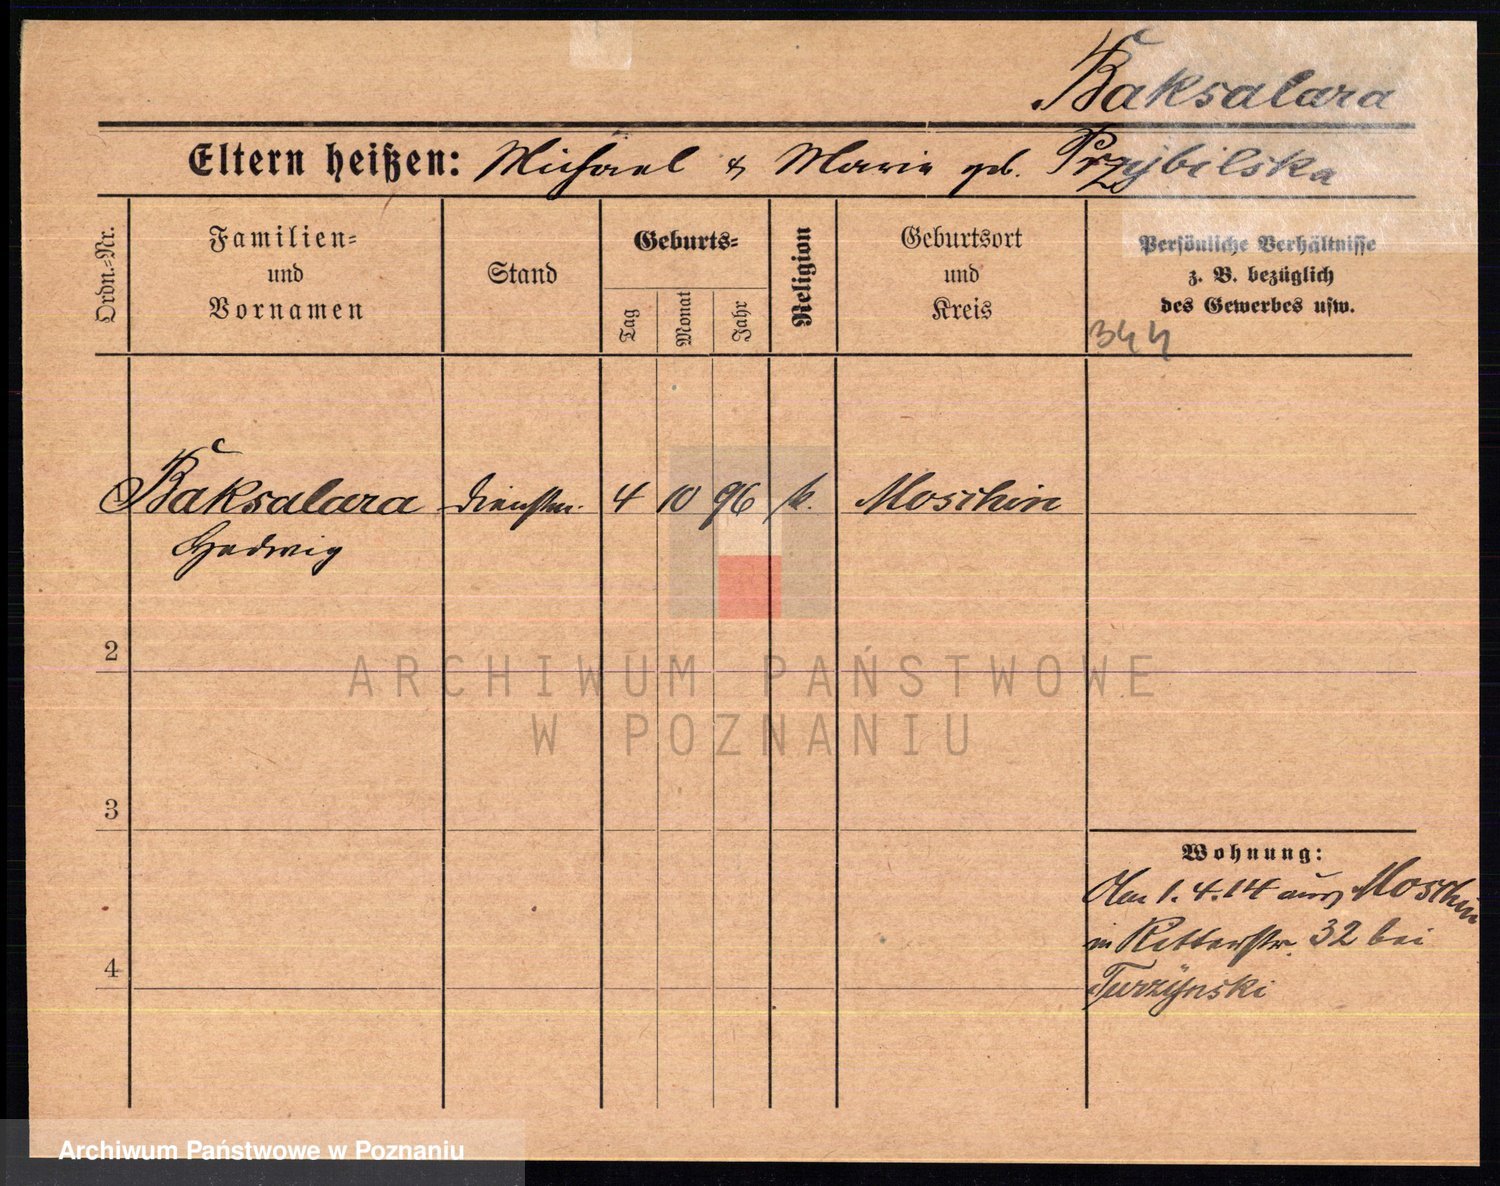 Baksalara
Eltern heißen: Michael & Marie geb. Przybilska
Ordn.-Nr.
Familien-
und
Vornamen
Stand
Geburts-
Tag
Monat
Jahr
Religion
Geburtsort
und
Kreis
Persönliche Verhältnisse
z. B. bezüglich
des Gewerbes usw.
344
Baksalara Dienstm. 4 10 96 k. Moschin
Hedwig
2
3
4
Wohnung:
Am 1.4.14 aus Moschin
in Ritterstr. 32 bei
Turzynski
ARCHIWUM PAŃSTWOWE
W POZNANIU
Archiwum Państwowe w Poznaniu